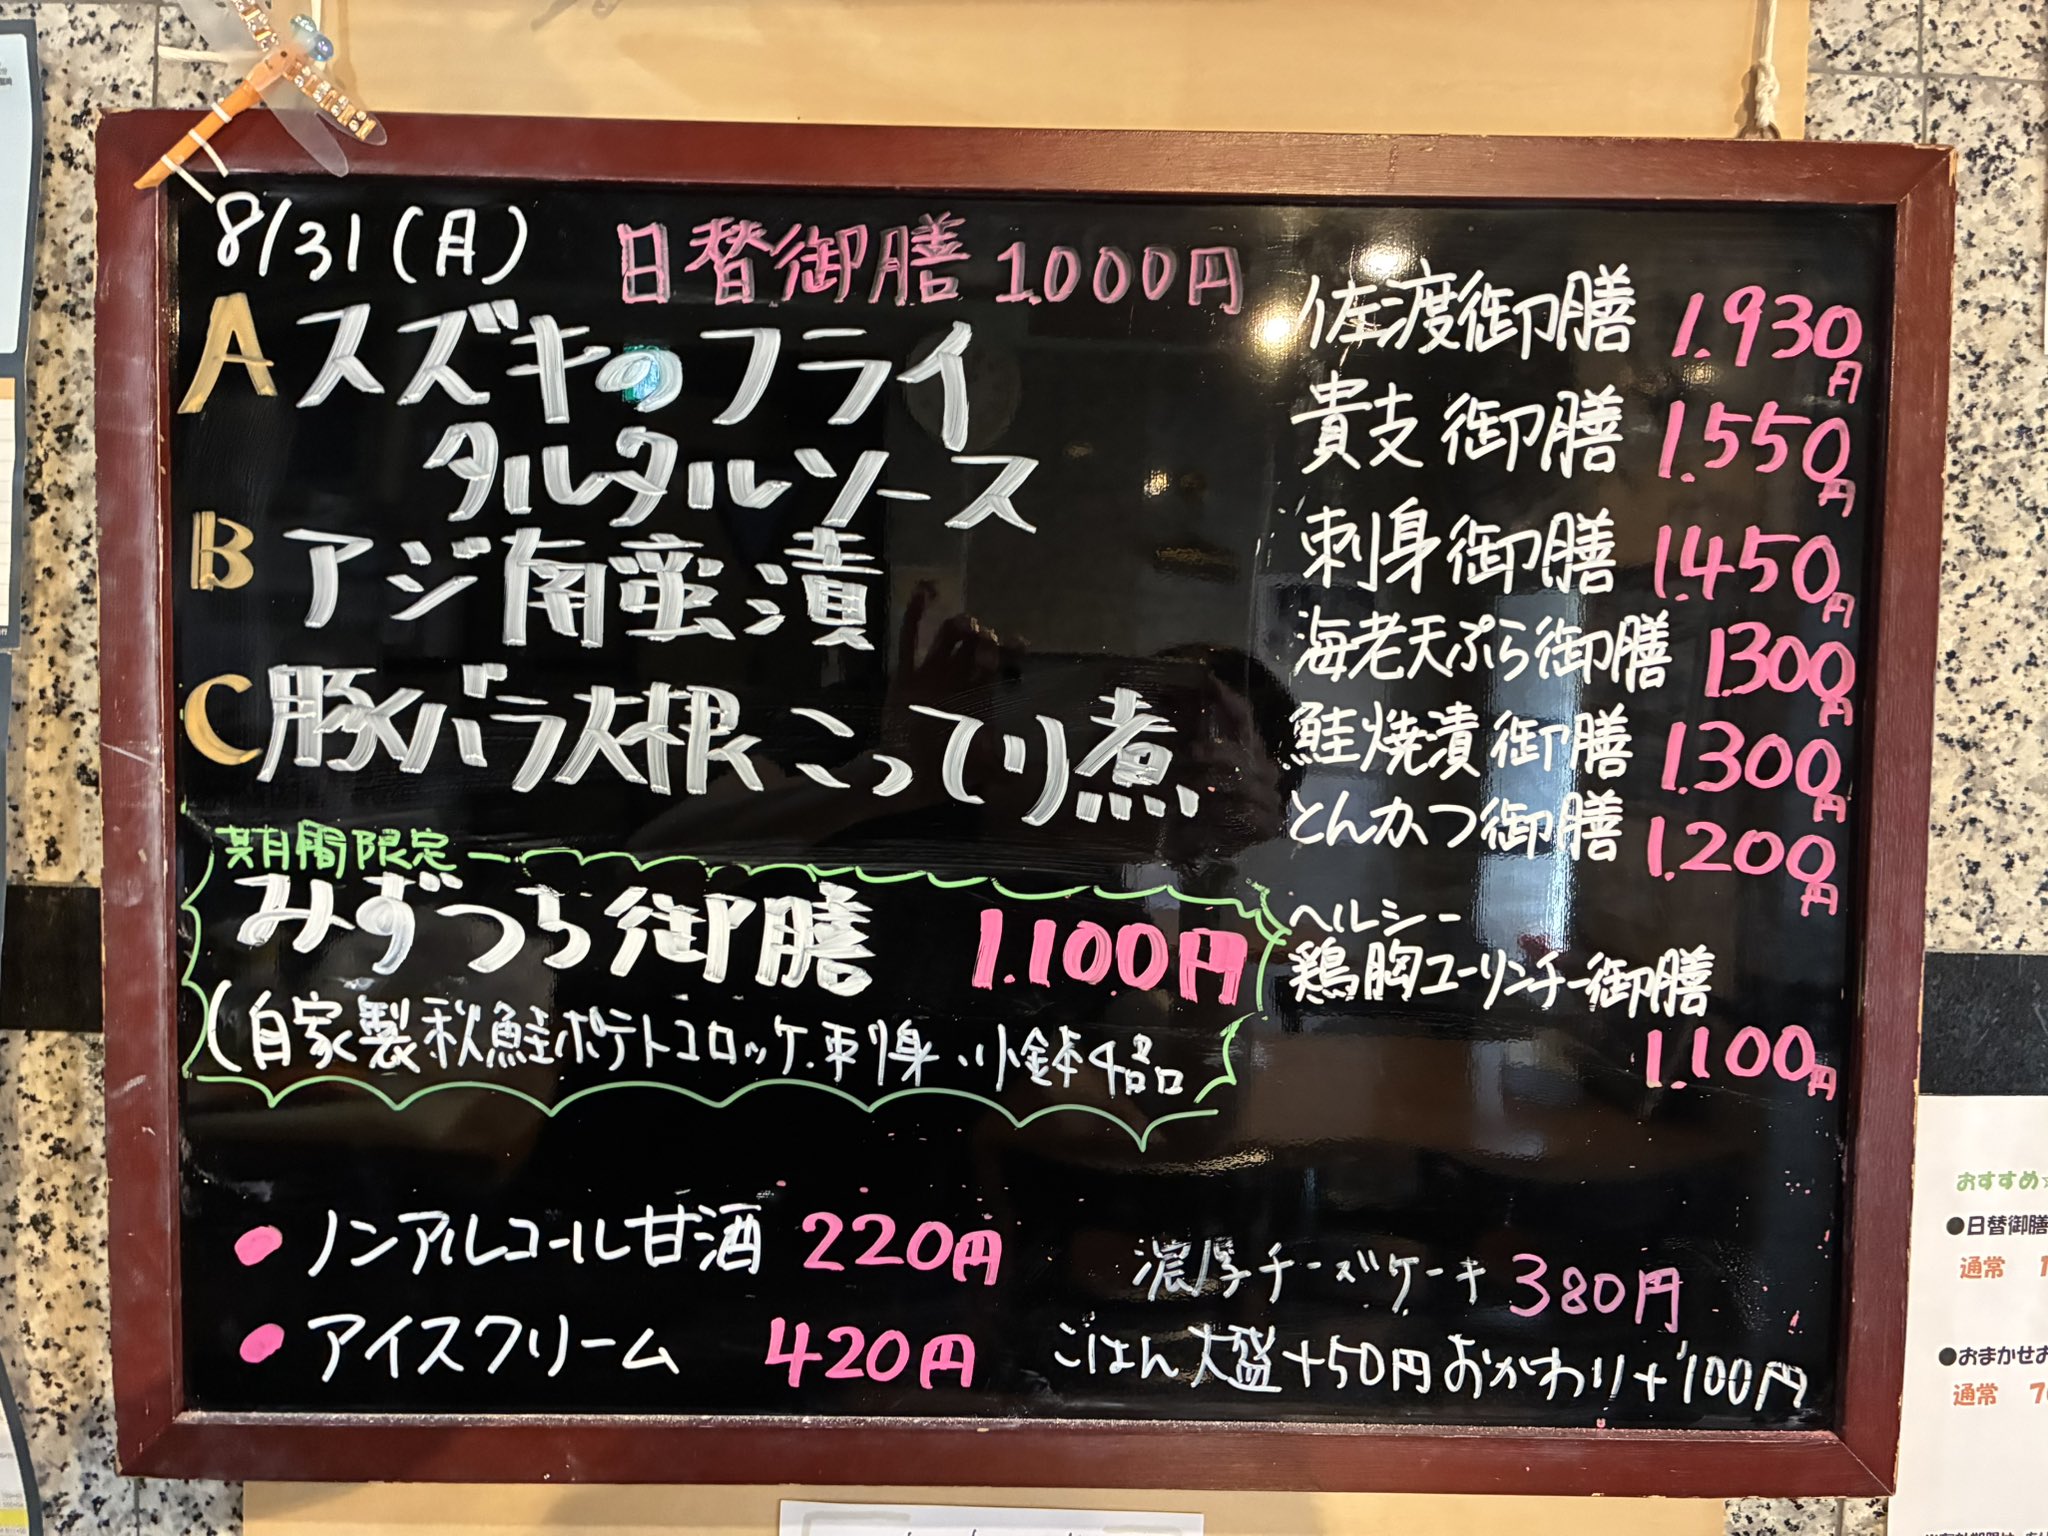 8/31(月)
日替御膳 1.000円
A スズキのフライ
タルタルソース
B アジ南蛮漬
C 豚バラ大根こってり煮
期間限定
みずつち御膳 1.100円
(自家製秋鮭ポテトコロッケ.刺身、小鉢4品
● ノンアルコール甘酒 220円
● アイスクリーム 420円
佐渡御膳 1.930円
貴支御膳 1.550円
刺身御膳 1.450円
海老天ぷら御膳 1.300円
鮭焼漬御膳 1.300円
とんかつ御膳 1.200円
ヘルシー
鶏胸ユーリンチー御膳
1.100円
濃厚チーズケーキ 380円
ごはん大盛+50円おかわり+100円
おすすめ
●日替御膳
通常
●おまかせお
通常